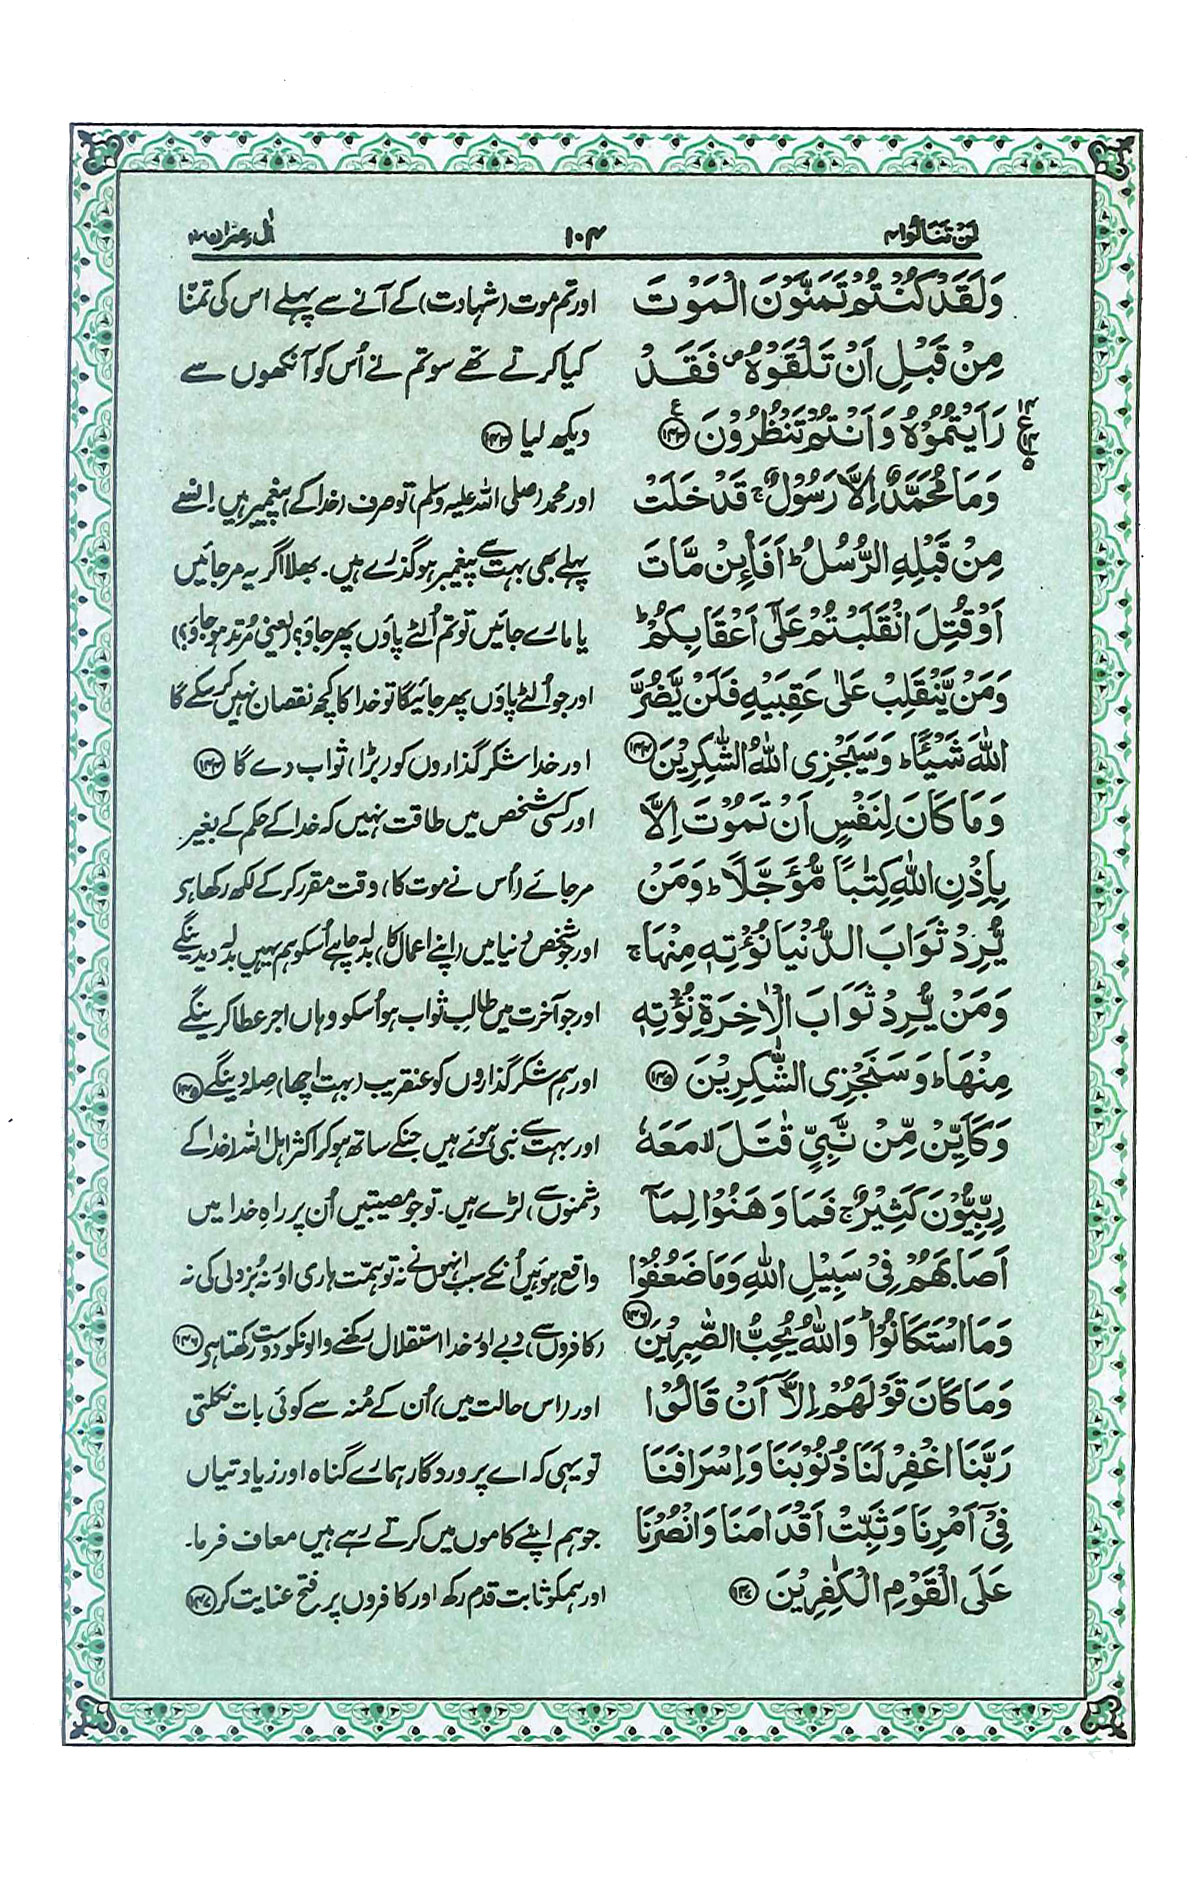 لَنْ تَنَالُوا ۴
۱۰۴
اٰل عمران ۳
وَلَقَدْ كُنْتُمْ تَمَنَّوْنَ الْمَوْتَ
مِنْ قَبْلِ اَنْ تَلْقَوْهُ ۪ فَقَدْ
رَاَيْتُمُوْهُ وَاَنْتُمْ تَنْظُرُوْنَ ﴿۱۴۳﴾
وَمَا مُحَمَّدٌ اِلَّا رَسُوْلٌ ۚ قَدْ خَلَتْ
مِنْ قَبْلِهِ الرُّسُلُ ؕ اَفَا۟ئِنْ مَّاتَ
اَوْ قُتِلَ انْقَلَبْتُمْ عَلٰۤى اَعْقَابِكُمْ ؕ
وَمَنْ يَّنْقَلِبْ عَلٰى عَقِبَيْهِ فَلَنْ يَّضُرَّ
اللّٰهَ شَيْـًٔا ؕ وَسَيَجْزِى اللّٰهُ الشّٰكِرِيْنَ ﴿۱۴۴﴾
وَمَا كَانَ لِنَفْسٍ اَنْ تَمُوْتَ اِلَّا
بِاِذْنِ اللّٰهِ كِتٰبًا مُّؤَجَّلًا ؕ وَمَنْ
يُّرِدْ ثَوَابَ الدُّنْيَا نُؤْتِهٖ مِنْهَا ۚ
وَمَنْ يُّرِدْ ثَوَابَ الْاٰخِرَةِ نُؤْتِهٖ
مِنْهَا ؕ وَسَنَجْزِى الشّٰكِرِيْنَ ﴿۱۴۵﴾
وَكَاَيِّنْ مِّنْ نَّبِيٍّ قٰتَلَ ۙ مَعَهٗ
رِبِّيُّوْنَ كَثِيْرٌ ۚ فَمَا وَهَنُوْا لِمَاۤ
اَصَابَهُمْ فِيْ سَبِيْلِ اللّٰهِ وَمَا ضَعُفُوْا
وَمَا اسْتَكَانُوْا ؕ وَاللّٰهُ يُحِبُّ الصّٰبِرِيْنَ ﴿۱۴۶﴾
وَمَا كَانَ قَوْلَهُمْ اِلَّاۤ اَنْ قَالُوْا
رَبَّنَا اغْفِرْ لَنَا ذُنُوْبَنَا وَاِسْرَافَنَا
فِيْۤ اَمْرِنَا وَثَبِّتْ اَقْدَامَنَا وَانْصُرْنَا
عَلَى الْقَوْمِ الْكٰفِرِيْنَ ﴿۱۴۷﴾
اور تم موت (شہادت) کے آنے سے پہلے اس کی تمنّا
کیا کرتے تھے سو تم نے اُس کو آنکھوں سے
دیکھ لیا ﴿۱۴۳﴾
اور محمد (صلی اللہ علیہ وسلم) تو صرف (خدا کے) پیغمبر ہیں ان سے
پہلے بھی بہت سے پیغمبر ہو گذرے ہیں۔ بھلا اگر یہ مر جائیں
یا مارے جائیں تو تم اُلٹے پاؤں پھر جاؤ؟ (یعنی مُرتد ہو جاؤ؟)
اور جو اُلٹے پاؤں پھر جائیگا تو خدا کا کچھ نقصان نہیں کر سکے گا
اور خدا شکر گذاروں کو (بڑا) ثواب دے گا ﴿۱۴۴﴾
اور کسی شخص میں طاقت نہیں کہ خدا کے حکم کے بغیر
مر جائے (اُس نے موت کا) وقت مقرر کر کے لکھ رکھا ہی
اور جو شخص دنیا میں (اپنے اعمال کا) بدلہ چاہے اُسکو ہم یہیں بدلہ دیدینگے
اور جو آخرت میں طالبِ ثواب ہو اُسکو وہاں اجر عطا کرینگے
اور ہم شکر گذاروں کو عنقریب (بہت اچھا) صلہ دینگے ﴿۱۴۵﴾
اور بہت سے نبی ہوئے ہیں جنکے ساتھ ہو کر اکثر اہل اللہ (خدا کے
دشمنوں سے) لڑے ہیں۔ تو جو مصیبتیں اُن پر راہِ خدا میں
واقع ہوئیں اُنکے سبب انہوں نے نہ تو ہمّت ہاری اور نہ بُزدلی کی نہ
(کافروں سے) دبے اور خدا استقلال رکھنے والونکو دوست رکھتا ہی ﴿۱۴۶﴾
اور (اس حالت میں) اُن کے مُنہ سے کوئی بات نکلتی
تو یہی کہ اے پروردگار ہمارے گناہ اور زیادتیاں
جو ہم اپنے کاموں میں کرتے رہے ہیں معاف فرما۔
اور ہمکو ثابت قدم رکھ اور کافروں پر فتح عنایت کر ﴿۱۴۷﴾